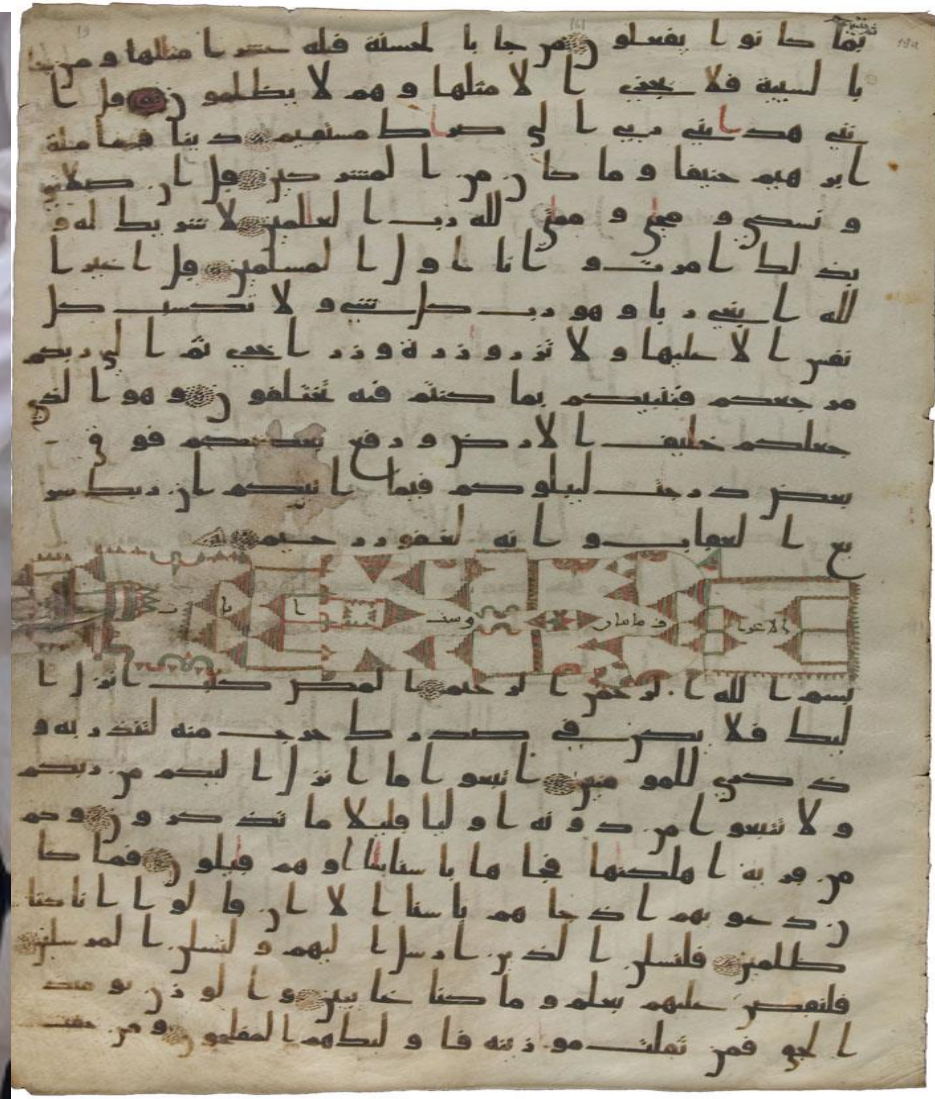 بما كانوا يفعلون من جا بالحسنة فله عشر امثلها ومن جا
بالسيية فلا يجزى الا مثلها وهم لا يظلمون قل ا
ننى هداينى ربى الى صراط مستقيم دينا قيما ملة
ابرهيم حنيفا وما كان من المشركين قل ان صلاتى
ونسكى ومحيى ومماتى لله رب العلمين لا شريك له و
بذلك امرت وانا اول المسلمين قل اغير ا
لله ابغى ربا وهو رب كل شى ولا تكسب كل
نفس الا عليها ولا تزر وزرة وزر اخرى ثم الى ربكم
مرجعكم فينبيكم بما كنتم فيه تختلفون وهو الذى
جعلكم خليف الارض ورفع بعضكم فوق
بعض درجت ليبلوكم فيما اتيكم ان ربك سر
يع العقاب وانه لغفور رحيم
الاعراف مايتان وست ايات
بسم الله الرحمن الرحيم المص كتب انزل ا
ليك فلا يكن فى صدرك حرج منه لتنذر به و
ذكرى للمومنين اتبعوا ما انزل اليكم من ربكم
ولا تتبعوا من دونه اوليا قليلا ما تذكرون وكم
من قرية اهلكنها فجاها باسنا بيتا او هم قيلون فما كا
ن دعويهم اذ جاهم باسنا الا ان قالوا انا كنا
ظلمين فلنسلن الذين ارسل اليهم ولنسلن المرسلين
فلنقصن عليهم بعلم وما كنا غايبين والوزن يوميذ
الحق فمن ثقلت موزينه فاوليك هم المفلحون ومن خفت